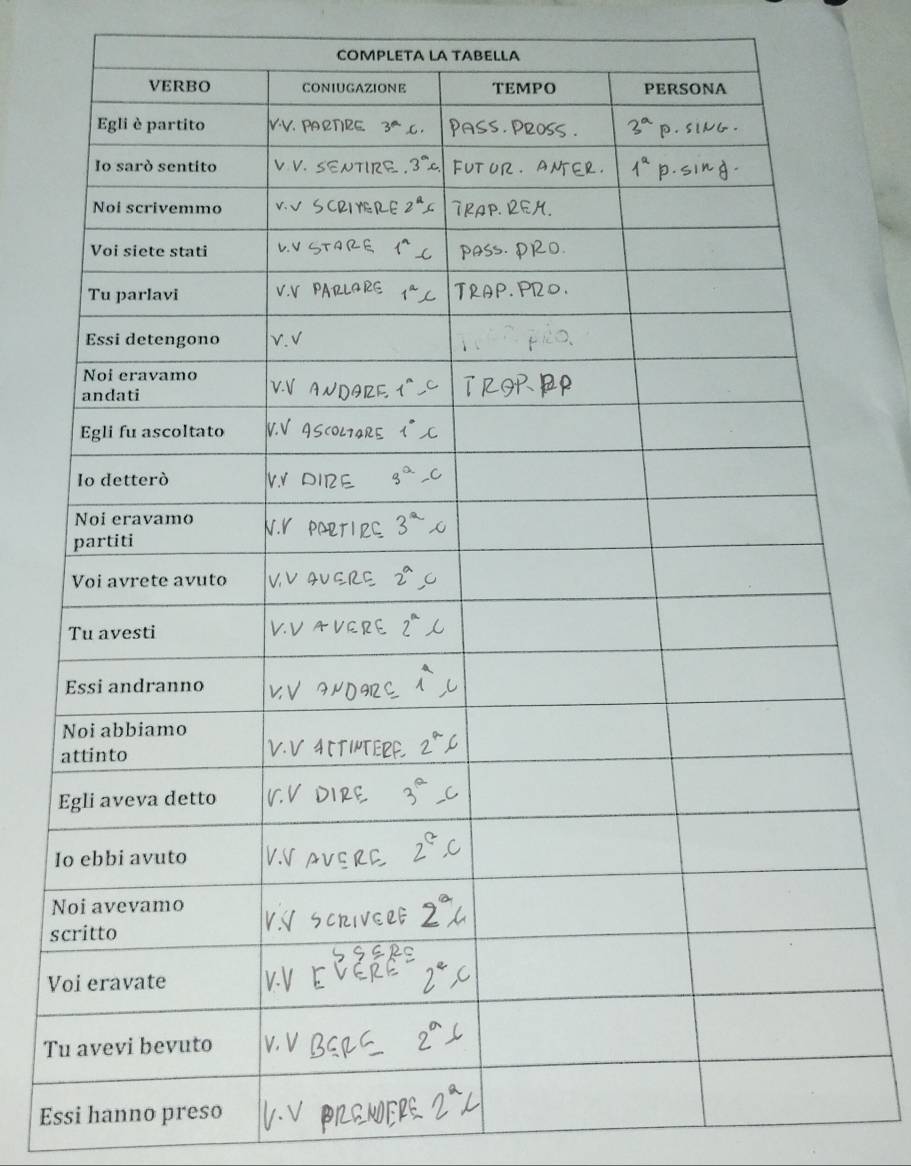 COMPLETA LA TABELLA
VERBO CONIUGAZIONE TEMPO PERSONA
Egli è partito V.V. PARTIRE 3ª C. PASS. PROSS. 3ª P. SING.
Io sarò sentito V.V. SENTIRE. 3ª C. FUTUR. ANTER. 1ª p. sing.
Noi scrivemmo V.V SCRIVERE 2ª C TRAP. REM.
Voi siete stati V.V STARE 1ª C PASS. PRO.
Tu parlavi V.V PARLARE 1ª C TRAP. PRO.
Essi detengono V.V PRO.
Noi eravamo
andati V.V ANDARE 1ª C TRAP. PP
Egli fu ascoltato V.V ASCOLTARE 1ª C
Io detterò V.V DIRE 3ª C
Noi eravamo
partiti V.V PARTIRE 3ª C
Voi avrete avuto V.V AVERE 2ª C
Tu avesti V.V AVERE 2ª C
Essi andranno V.V ANDARE 1ª C
Noi abbiamo
attinto V.V ATTINTERE 2ª C
Egli aveva detto V.V DIRE 3ª C
Io ebbi avuto V.V AVERE 2ª C
Noi avevamo
scritto V.V SCRIVERE 2ª C
SSERE
Voi eravate V.V EVERE 2ª C
Tu avevi bevuto V.V BERE 2ª C
Essi hanno preso V.V PRENDERE 2ª C